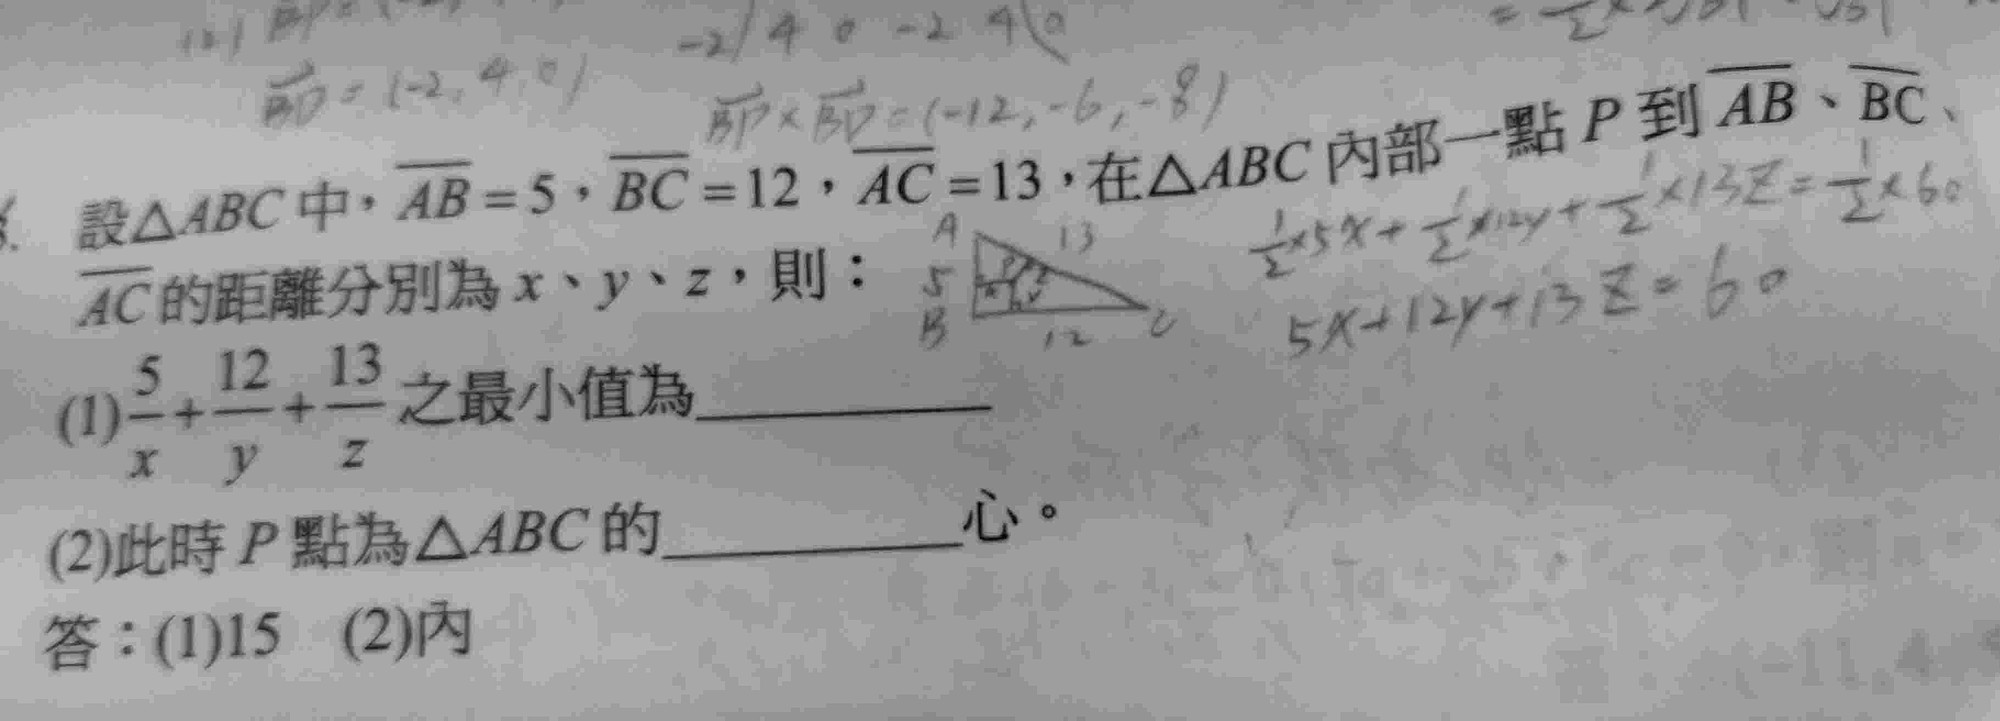 BD = (-2, 4, 0)
-2) 4 0 -2 4 (0
BP × BD = (-12, -6, -8)
設△ABC中，AB=5，BC=12，AC=13，在△ABC內部一點P到AB、BC、
AC的距離分別為x、y、z，則：
A 13
5
B 12 C
1/2×5x+1/2×12y+1/2×13z=1/2×60
5x+12y+13z=60
(1) 5/x + 12/y + 13/z 之最小值為
(2)此時P點為△ABC的 心。
答：(1)15 (2)內